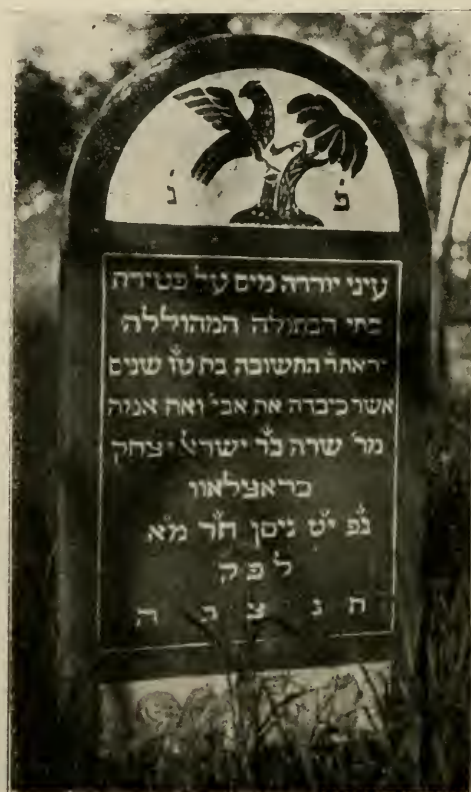 פ נ
עיני יורדה מים על פטירת
בתי הבתולה המהוללה
יראתה החשובה בת טו שנים
אשר כיבדה את אבי׳ ואת אמה
מר׳ שרה בר ישרא׳ יצחק
בראצלאוו
נפ י״ט ניסן תר מ״א
ל פ ק
ת נ צ ב ה